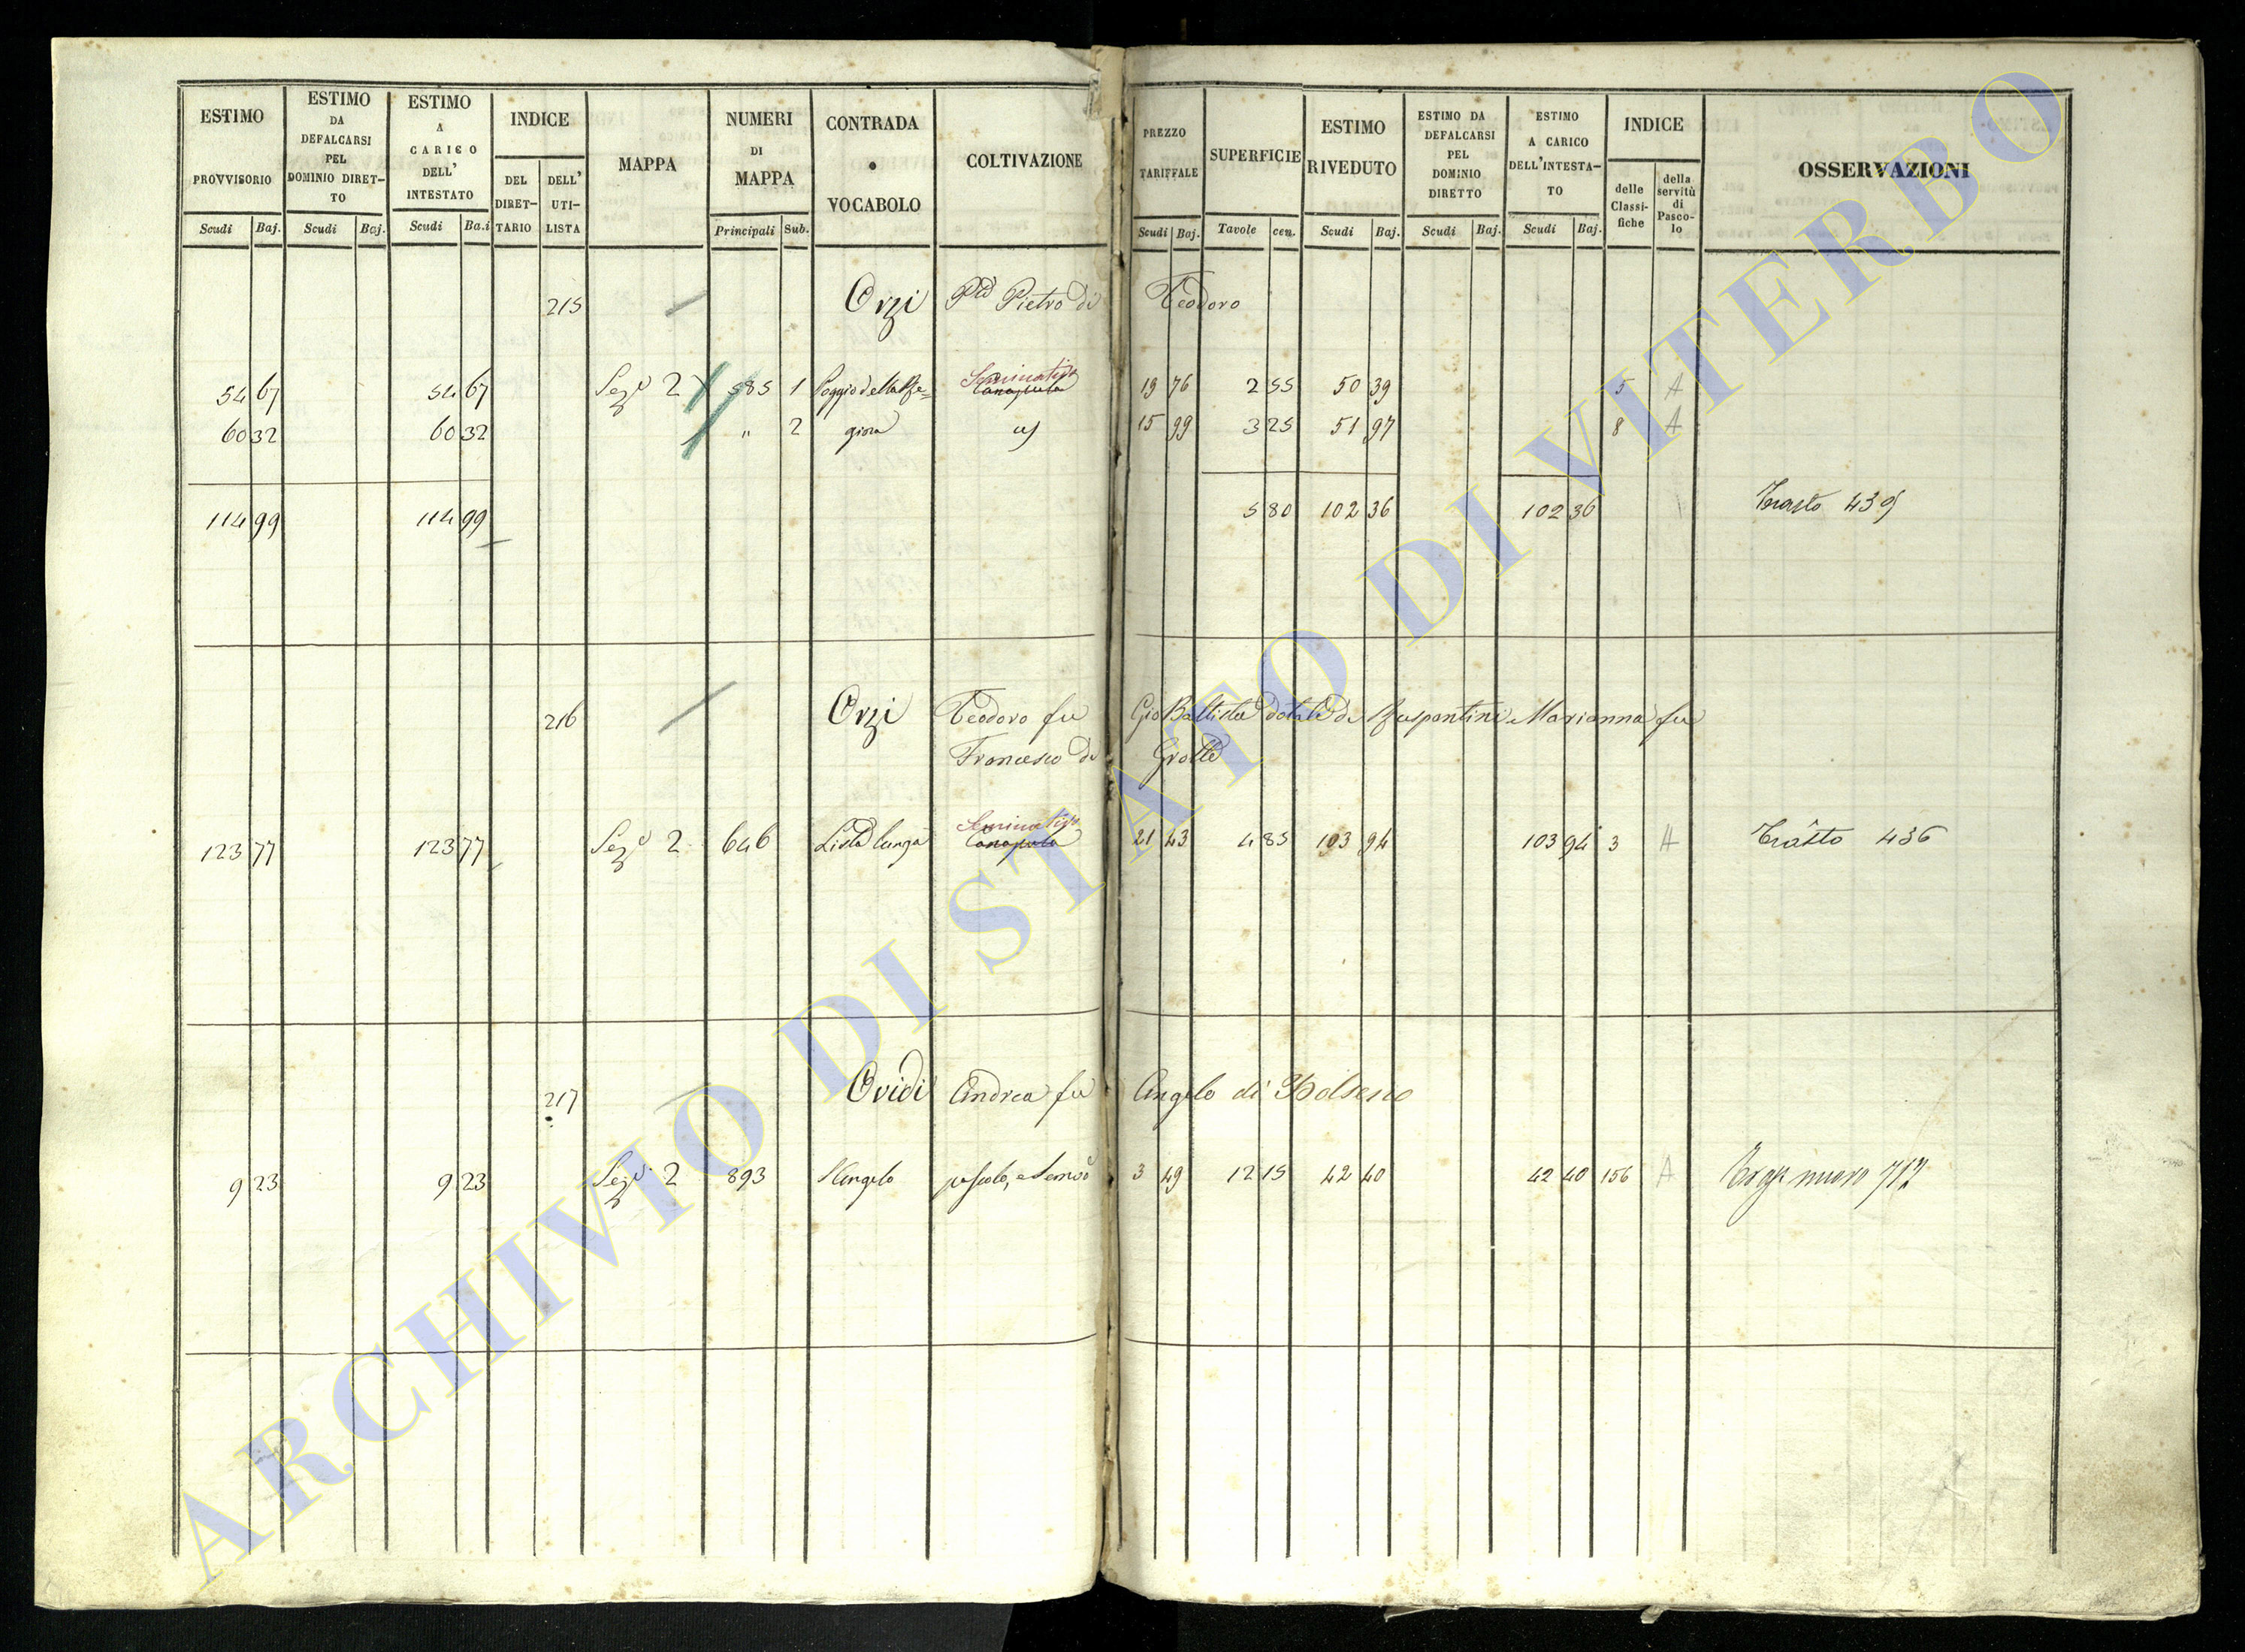 ESTIMO PROVVISORIO Scudi Baj.
ESTIMO DA DEFALCARSI PEL DOMINIO DIRET-TO Scudi Baj.
ESTIMO A CARICO DELL' INTESTATO Scudi Ba.i
INDICE DEL DIRET-TARIO DELL' UTI-LISTA
MAPPA
NUMERI DI MAPPA Principali Sub.
CONTRADA o VOCABOLO
COLTIVAZIONE
PREZZO TARIFFALE Scudi Baj.
SUPERFICIE Tavole cen.
ESTIMO RIVEDUTO Scudi Baj.
ESTIMO DA DEFALCARSI PEL DOMINIO DIRETTO Scudi Baj.
ESTIMO A CARICO DELL'INTESTA-TO Scudi Baj.
INDICE delle Classi-fiche della servitù di Pasco-lo
OSSERVAZIONI
215 Orzi Pietro di Teodoro
54 67 54 67 Sez. 2 585 1 Poggio della Seminativo 19 76 2 55 50 39 5 A
60 32 60 32 " 2 15 99 3 25 51 97 8 A
114 99 114 99 5 80 102 36 102 36 439
216 Orzi Teodoro fu Gio Battista dotale di Marianna fu
Francesco di Grotte
123 77 123 77 Sez. 2 646 Lista lunga Seminativo 21 43 4 85 103 94 103 94 3 A 436
217 Ovidi Andrea fu Angelo di Bolsena
9 23 9 23 Sez. 2 893 S Angelo pascolo, e 3 49 12 15 42 40 42 40 156 A nuovo 712
ARCHIVIO DI STATO DI VITERBO